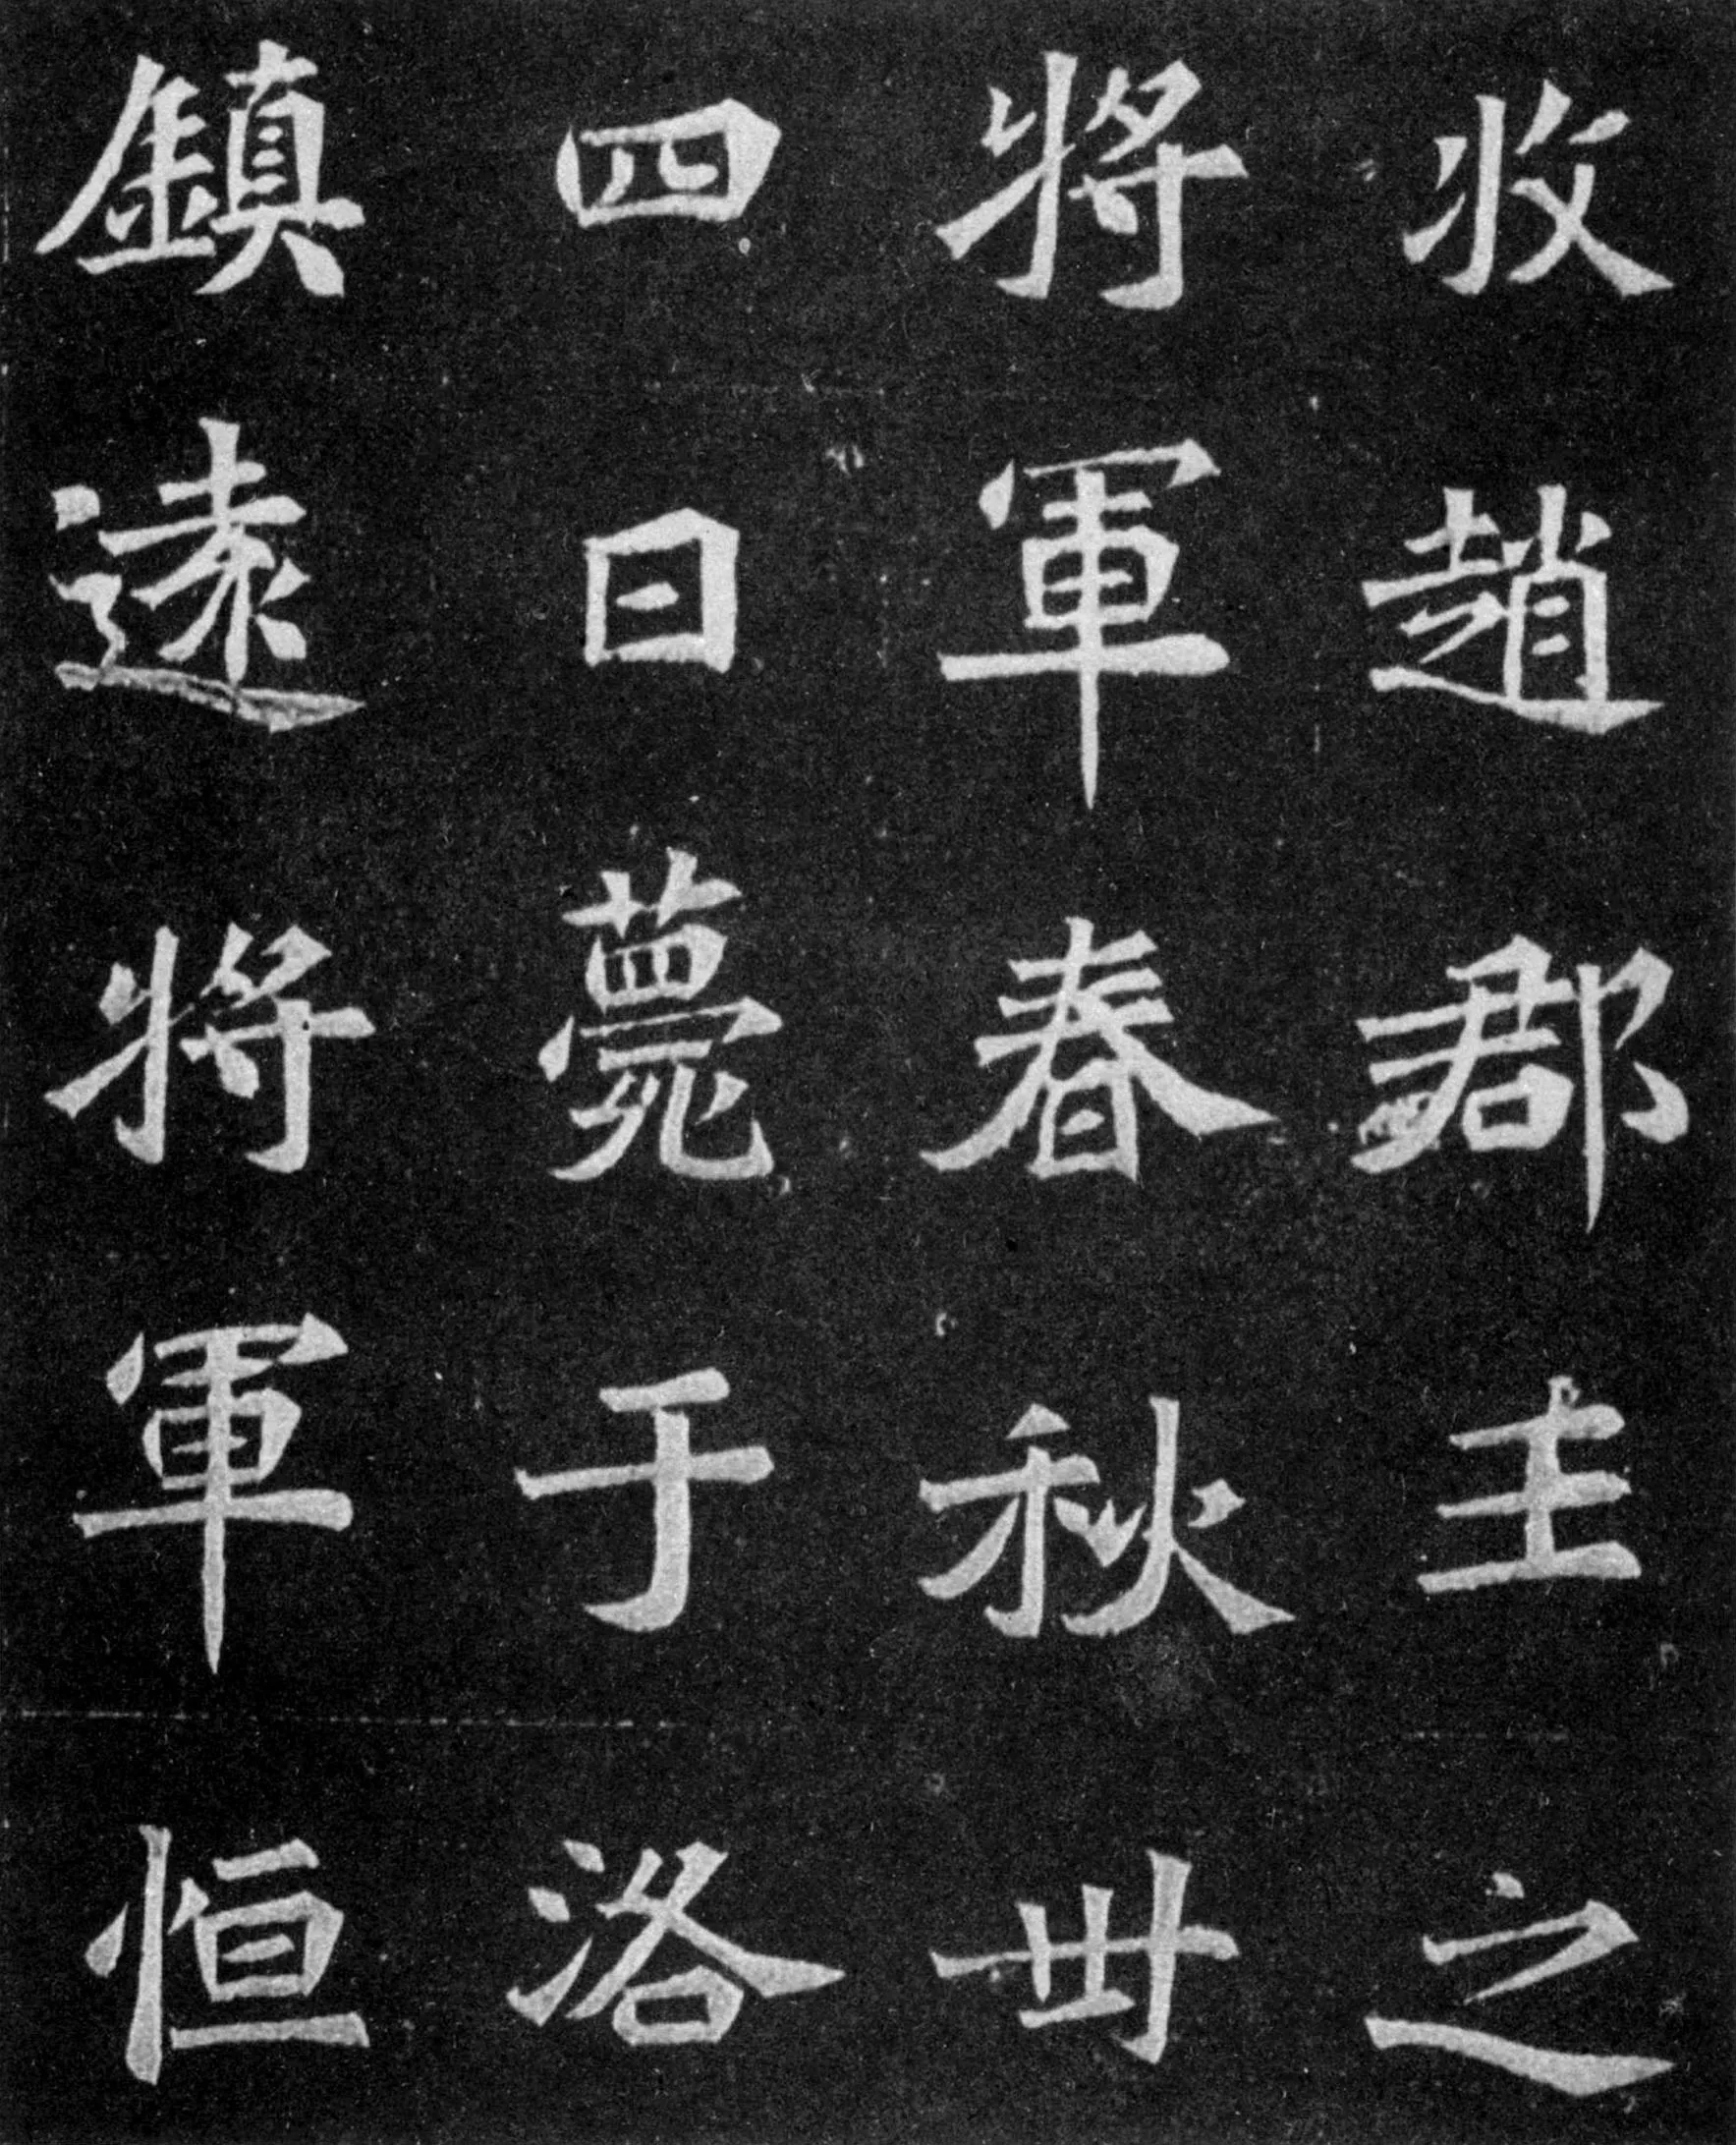 收趙郡王之
將軍春秋卌
四日薨于洛
鎮遠將軍恒